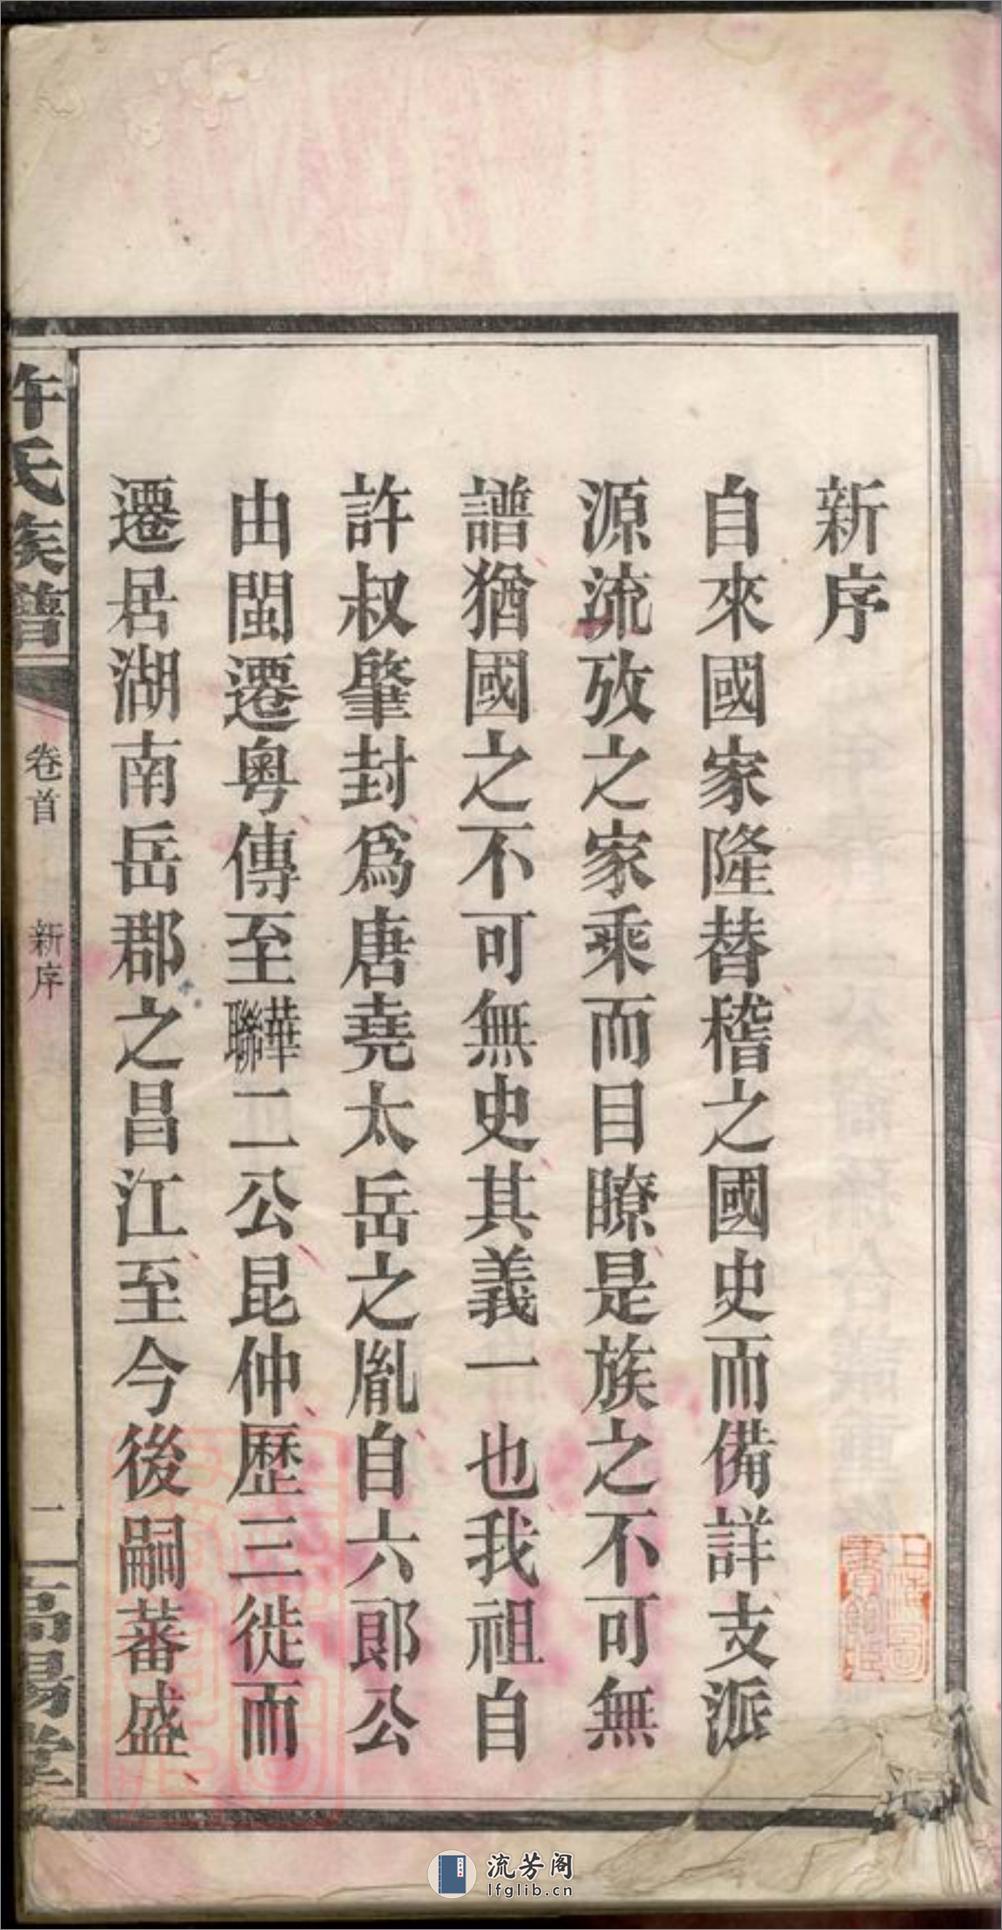 新序
自來國家隆替稽之國史而備詳支派
源流攷之家乘而目瞭是族之不可無
譜猶國之不可無史其義一也我祖自
許叔肇封爲唐堯太岳之胤自六郎公
由閩遷粵傳至聯華二公昆仲歷三徙而
遷居湖南岳郡之昌江至今後嗣蕃盛
許氏族譜
卷首
新序
一
高陽堂
流芳阁
lfglib.cn